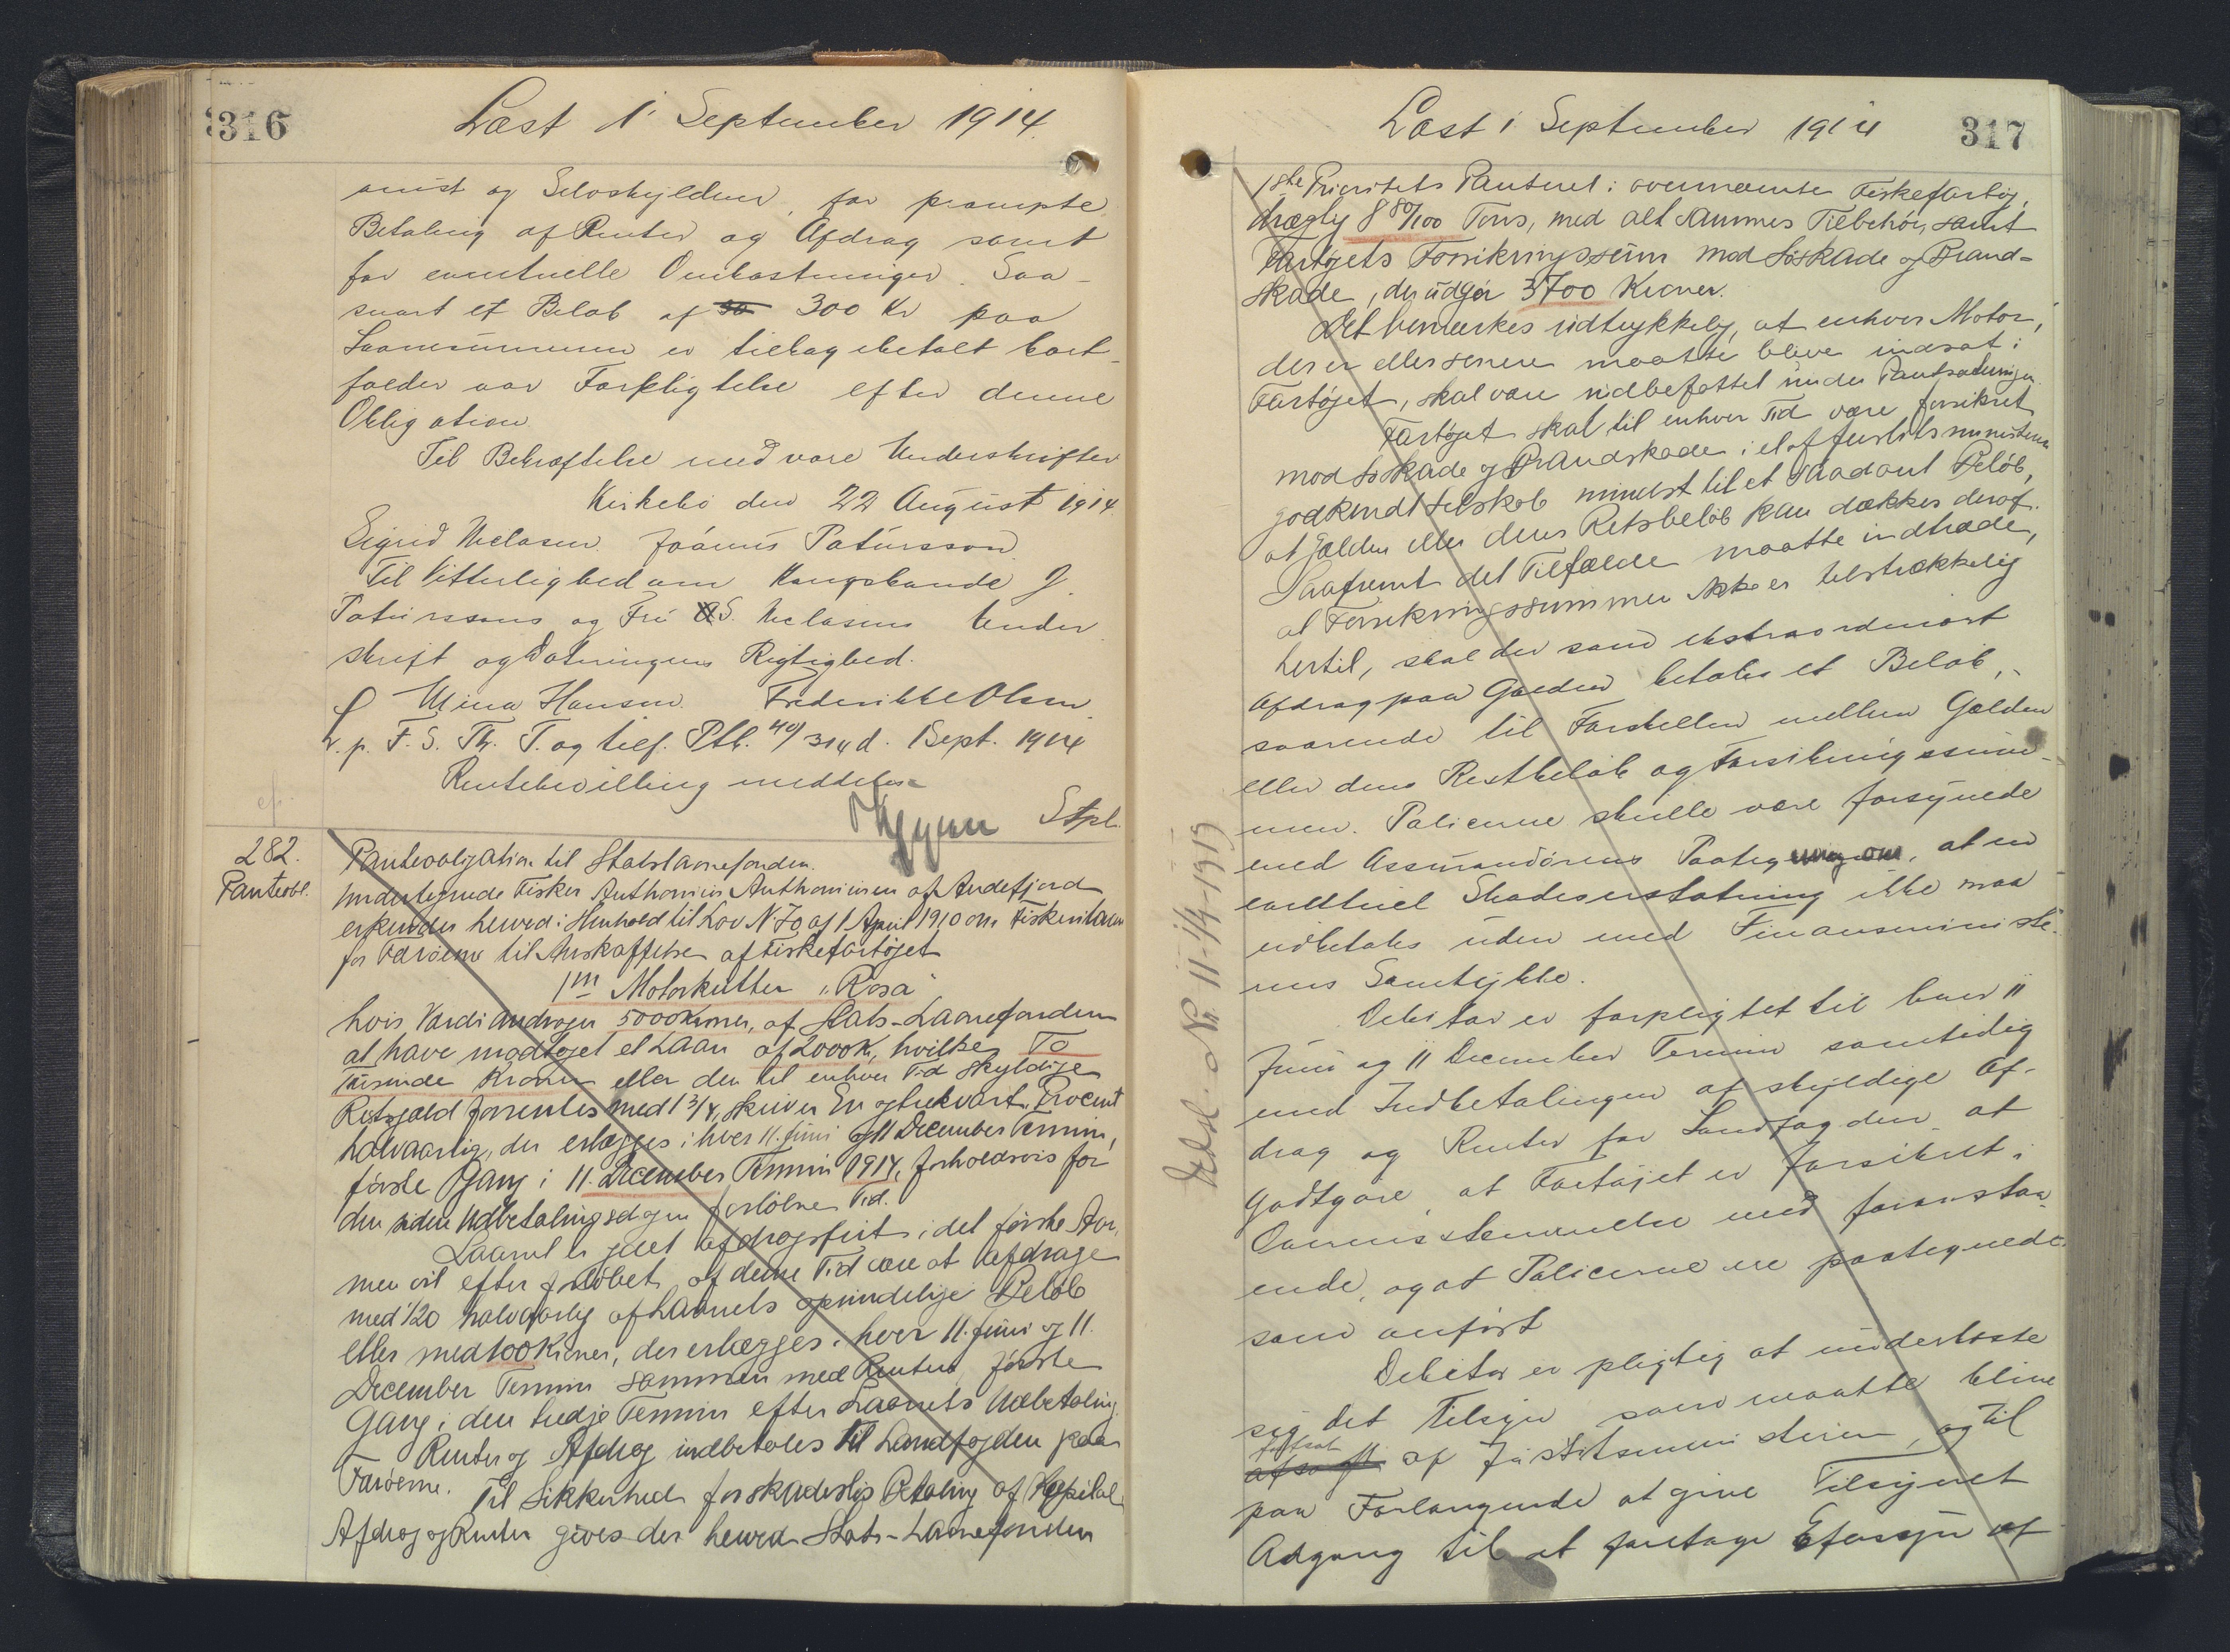 316
Læst 1. September 1914.
onist og Selvskyldner, for prompte
Betaling af Renter og Afdrag samt
for eventuelle Omkostninger. Saa-
snart et Beløb af 300 Kr paa
Laanesummen er tilbagebetalt bort-
falder vor Forpligtelse efter denne
Obligation
Til Bekræftelse med vore Underskrifter
Kirkebø den 22 August 1914.
Sigrid Niclasen Jóannes Patursson.
Til Vitterlighed om Kongsbonde J.
Paturssons og Frú S. Niclasens Under
skrift og Dateringens Rigtighed.
Mina Hansen. Frederikke Olsen
L. p. F. S. Th. T. og tilf. Ptb. 40/314 d. 1 Sept. 1914
Rentebevilling meddeles
Stpl.
282.
Panteobl.
Panteobligation til Statslaanefonden.
Undertegnede Fisker Anthonius Anthoniusen af Andefjord
erkender herved i Henhold til Lov N 70 af 1 April 1910 om Fiskerilaan
for Færøerne til Anskaffelse af Fiskefartøjet
1 m Motorkutter "Rosa"
hvis Værdi andrager 5000 Kroner, af Stats-Laanefonden
at have modtaget et Laan af 2000 K, hvilke To
Tusinde Kroner eller den til enhver Tid skyldige
Restgæld forrentes med 1 3/4, skriver En og trekvart Procent
halvaarlig, der erlægges i hver 11. Juni og 11 December Termin,
første Gang i 11. December Termin 1914, forholdsvis for
den siden Udbetalingsdagen forløbne Tid.
Laanet er ydet afdragsfrit i det første Aar,
men vil efter Forløbet af denne Tid være at afdrage
med 1/20 halvaarlig af Laanets oprindelige Beløb
eller med 100 Kroner, der erlægges i hver 11. Juni og 11.
December Termin sammen med Renten, første
Gang i den tredje Termin efter Laanets Udbetaling.
Renter og Afdrag indbetales til Landfogden paa
Færøerne. Til Sikkerhed for skadesløs Betaling af Kapital,
Afdrag og Renter gives der herved Stats-Laanefonden
Læst 1. September 1914
317
1ste Prioritets Panteret i ovennævnte Fiskefartøj,
drægtig 8 80/100 Tons, med alt sammes Tilbehør, samt
Fartøjets Forsikringssum mod Søskade og Brand-
skade, der udgør 3700 Kroner.
Det bemærkes udtrykkelig, at enhver Motor,
der er eller senere maatte blive indsat i
Fartøjet, skal være indbefattet under Pantsætningen.
Fartøjet skal til enhver Tid være forsikret
mod Søskade og Brandskade i et af Justitsministeriet
godkendt Selskab mindst til et saadant Beløb,
at Gælden eller dens Restbeløb kan dækkes deraf.
Saafremt det Tilfælde maatte indtræde,
at Forsikringssummen ikke er tilstrækkelig
hertil, skal der som ekstraordinært
Afdrag paa Gælden betales et Beløb,
svarende til Forskellen mellem Gælden
eller dens Restbeløb og Forsikringssum-
men. Policerne skulle være forsynede
med Assurandørens Paategning om, at en
eventuel Skadeserstatning ikke maa
udbetales uden med Finansministe-
riets Samtykke.
Debitor er forpligtet til hver 11
Juni og 11 December Termin samtidig
med Indbetalingen af skyldige Af-
drag og Renter for Landfogden at
godtgøre, at Fartøjet er forsikret i
Overensstemmelse med foranstaa-
ende, og at Policerne ere paategnede
som anført
Debitor er pligtig at underkaste
sig det Tilsyn som maatte blive
fastsat
af Justitsministeriet, og til
paa Forlangende at give Tilsynet
Adgang til at foretage Eftersyn af
Udsl. Nr. 11-1/4-1919